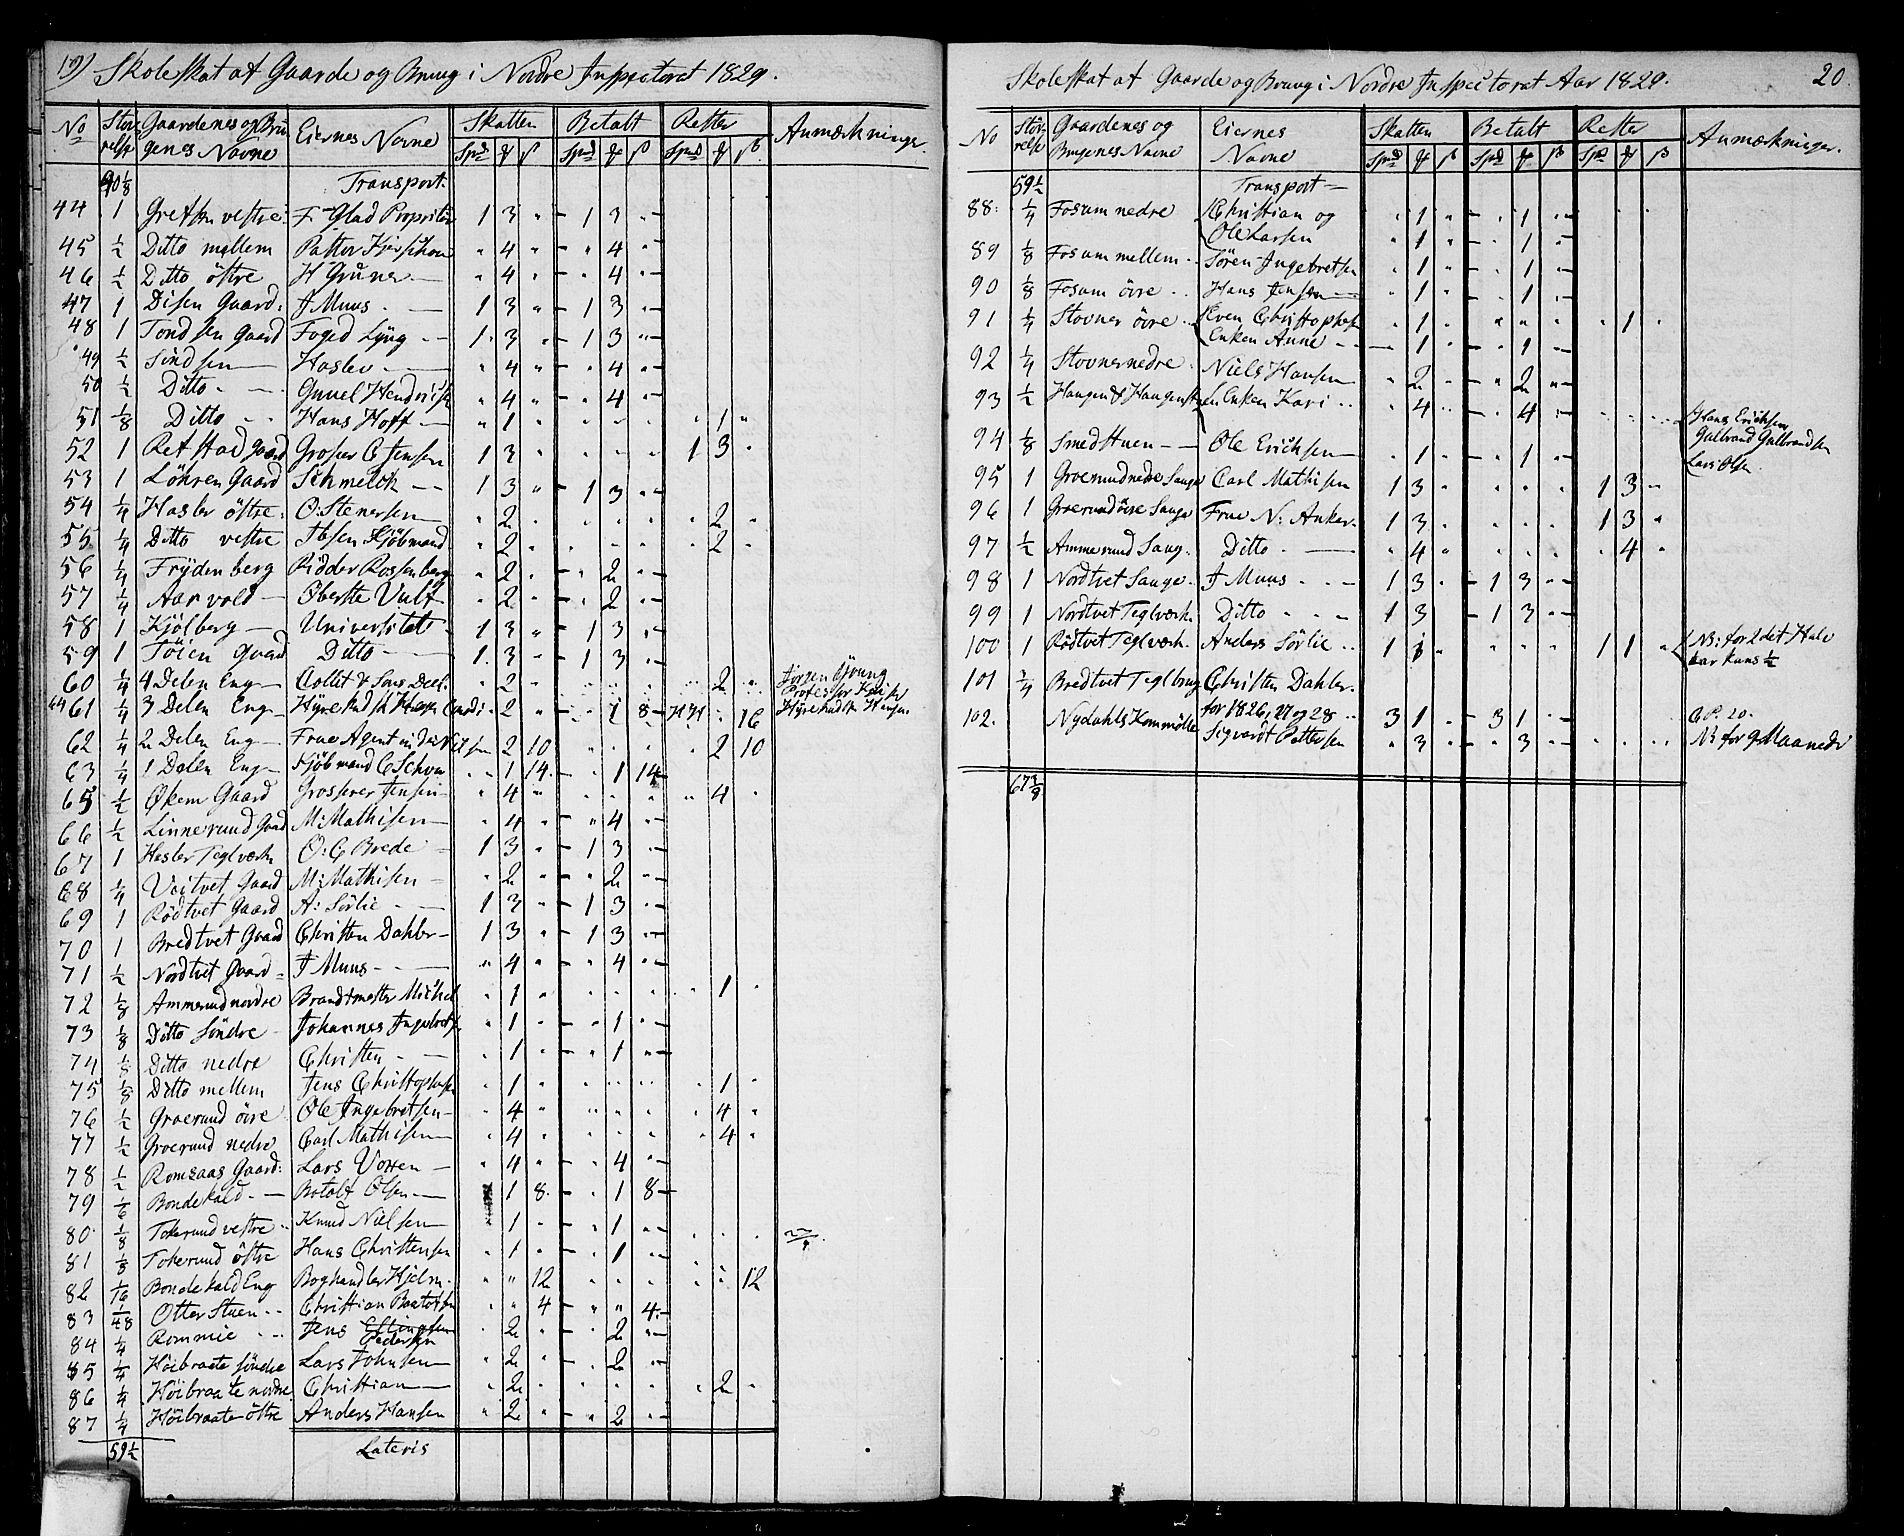 19) Skoleskat af Gaarde og Brug i Nordre Inspectorat 1829.
No Stør- Gaardenes og Bru- Eiernes Navne Skatten Betalt Rester Anmærkninger.
relse genes Navne Spd ß Spd ß Spd ß
Transport.
44 1 Grefsen vestre F. Glad Proprietær 1 3 " 1 3
45 ½ Ditto mellem Pastor " 4 " " 4
46 ½ Ditto östre H Grüner " 4 " " 4
47 1 Disen Gaard. J Muus. 1 3 " 1 3
48 1 Tondsen Gaard Foged Lyng 1 3 " 1 3
49 ½ Sindsen Hasler " 4 " " 4
50 ½ Ditto " 4 " " 4
51 ⅛ Ditto Hans Hoff " 1 " 1 "
52 1 Refstad Gaard Grosser C Jensen 1 3 1 3
53 1 Löhren Gaard Schmelck 1 3 " 1 3
54 ¼ Hasler östre O: Stenersen " 2 2
55 ¼ Ditto vestre Ibsen Kjöbmand " 2 2
56 ¼ Frydenberg Ridder Rosenberg " 2 " 2
57 ¼ Aarvold Oberste " 2 2
58 1 Kjölberg Universitet 1 3 " 1 3
59 1 Töien Gaard Ditto 1 3 1 3
60 ¼ 4 Delen Eng Collet & Söns Deel. " 2 2
61 ¼ 3 Delen Eng " 2 " 1 8 16
62 ¼ 2 Delen Eng Frue Agentinde Nielsen 2 10 2 10
63 ¼ 1 Delen Eng Kjöbmand C Schou " 1 14 1 14
65 ½ Økern Gaard Grosserer Jensen " 4 " 4
66 ½ Linnerund Gaard M: Mathisen " 4 " " 4
67 1 Hasler Teglværk O: C Brede 1 3 1 3
68 ¼ Veitvet Gaard M: Mathisen " 2 2
69 1 Rödtvet Gaard A: Sörlie 1 3 " 1 3
70 1 Bredtvet Gaard Christen Dahler 1 3 1 3
71 ½ Nordtvet Gaard J Muus " 4 4
72 ⅛ Ammerud nordre Brandtmester Michel " 1 1
73 ⅛ Ditto söndre Johannes Ingebretsen " 1 1
74 ⅛ Ditto nedre Christen " 1 1
75 ⅛ Ditto mellem Jens Christophersen " 1 1
76 ½ Groerund öire Ole Ingebretsen " 4 4
77 ½ Groerund nedre Carl Mathisen " 4 4
78 ½ Romsaas Gaard: Lars Voxen " 4 4
79 Bondekald Botolf Olsen 1 8 1 8
80 ⅛ Tokerund vestre Knud Nielsen " 1 1
81 ⅛ Tokerund östre Hans Christensen " 1 1
82 1/16 Bondekald Eng Boghandler Hjelm " " 12 12
83 1/48 Otter Stuen Christian " " 4 " " 4
84 ¼ Rommie Jens 2 2
Pedersen
85 ¼ Höibraate söndre Lars Johnsen " 2 2
86 ¼ Höibraate nordre Christian " 2 2
87 ¼ Höibraate östre Anders Hansen " 2 2
59½ Lateris
Jörgen
Professor
Skoleskat af Gaarde og Brug i Nordre Inspectorat Aar 1829. 20.
No Stör- Gaardenes og Eiernes Skatten Betalt Rester Anmærkninger.
relse Brugenes Navne Navne Spd ß Spd ß Spd ß
59½ Transport
88 ¼ Fosum nedre Christian og " 1 " 1
Ole Larsen " 1 " 1
89 ⅛ Fosum mellem Sören Ingebretsen " 1 " 1
90 ⅛ Fosum öire Hans Jensen " 1 " 1
91 ¼ Stovner öire Even Christophersen " 1 1
Enken Anne 1 1
92 ¼ Stovner nedre Niels Hansen " 2 " 2
93 ½ Haugen & Haugenstuen Enken Kari " 4 4
Hans Erichsen
Gulbrand Gulbrandsen
Lars Olsen
94 ⅛ Smedstuen Ole Erichsen " 1 1
95 1 Groerund nedre Sauge Carl Mathisen 1 3 1 3
96 1 Groerund öire Sauge Frue N: Anker 1 3 1 3
97 ½ Ammerund Saug. Ditto " 4 4
98 1 Nordtvet Sauge J Muus 1 3 1 3
99 1 Nordtvet Teglværk Ditto 1 3 1 3
100 1 Rödtvet Teglværk Anders Sörlie 1 1 1 1 NB: for 2det Hale
aar kuns ½
101 ¾ Bredtvet Teglbrug Christen Dahler.
for 1826, 27 og 28 3 1 3 1
102. Nydahls Kornmölle Sigvardt Pettersen " 3 3 NB for 9 Maaneder
67⅜